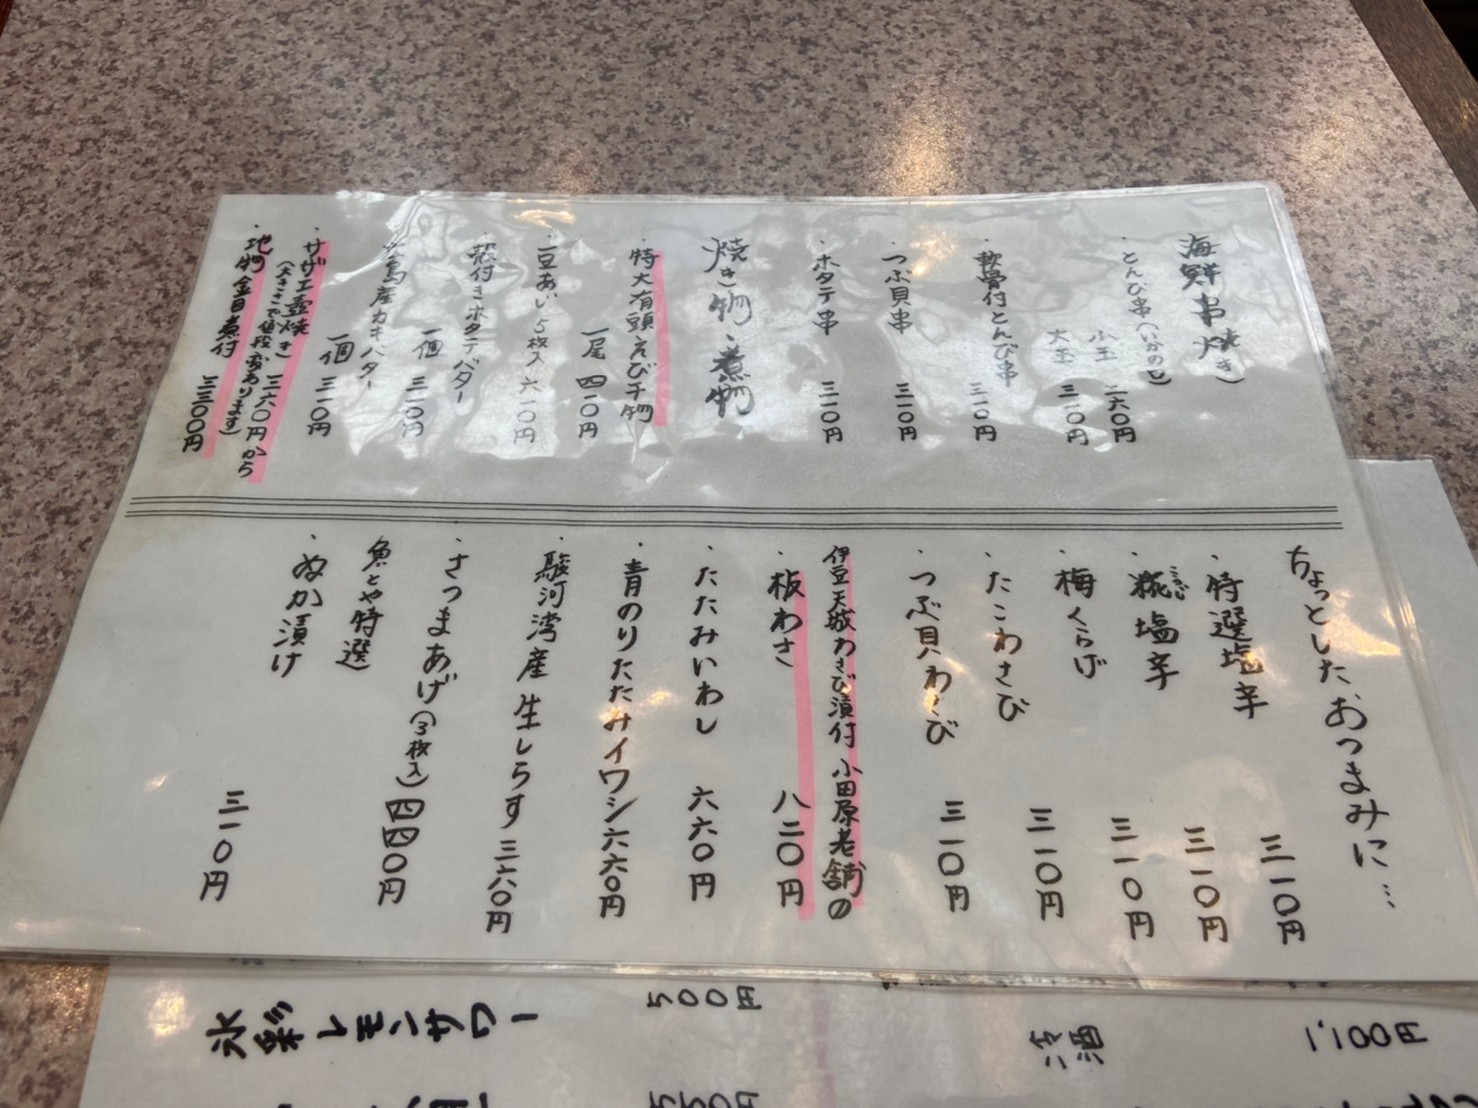 海鮮串焼き
・とんび串(いかのくち)
小玉 二六〇円
大玉 三一〇円
・軟骨付とんび串 三一〇円
・つぶ貝串 三一〇円
・ホタテ串 三一〇円
焼き物・煮物
・特大有頭えび干物
一尾 四一〇円
・豆あじ 5枚入 六一〇円
・殻付きホタテバター
一個 三一〇円
島産カキバター
一個 三一〇円
・サザエ壺焼き 三六〇円から
(大きさで値段変わります)
・地物金目煮付 三三〇〇円
ちょっとしたおつまみに…
・特選塩辛 三一〇円
・糀塩辛 三一〇円
こうじ
・梅くらげ 三一〇円
・たこわさび 三一〇円
・つぶ貝わさび 三一〇円
伊豆天城わさび漬付 小田原老舗の
・板わさ 八二〇円
・たたみいわし 六六〇円
・青のりたたみイワシ 六六〇円
・駿河湾産 生しらす 三六〇円
・さつまあげ(3枚入) 四四〇円
魚とや特選
・ぬか漬け 三一〇円
氷彩レモンサワー 500円
冷酒 1,100円
550円